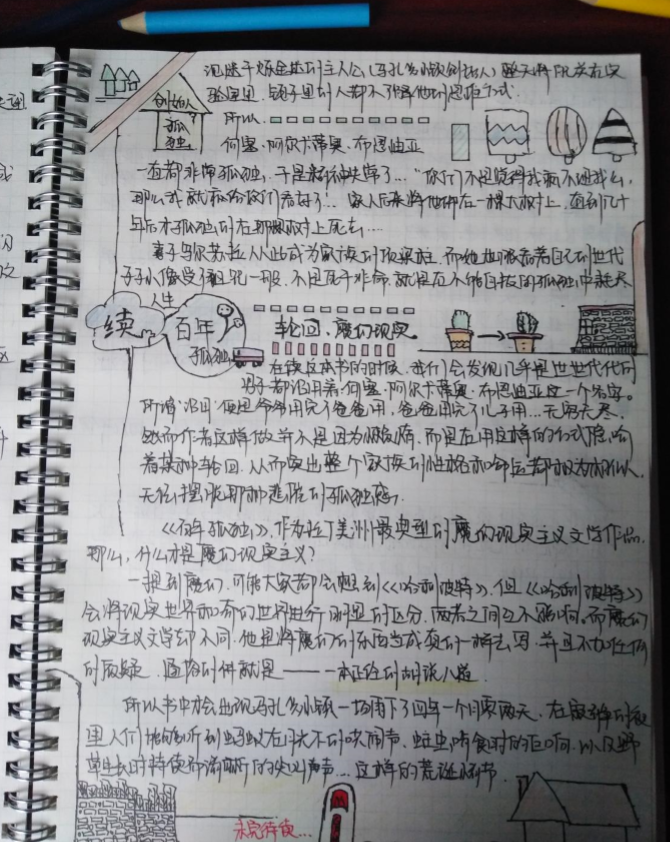 沉迷于炼金术的主人公(马孔多小镇创始人)整天将自己关在实
验室里,镇子里的人都不理解他的思维方式.
创始人
孤
独
所以
何塞·阿尔卡蒂奥·布恩迪亚
一直都非常孤独,于是精神失常了…"你们不是觉得我
那么我就 给你们看好了… 家人后来将他绑在一棵大树上,直到几十
年后才孤独的在那棵树上死去…
妻子乌尔苏拉从此成为家族的顶梁柱,而她也
子子孙孙像受了诅咒一般,不是死于非命,就是在不能自拔的孤独中耗尽
人生
续 百年
孤独
轮回、魔幻现实
在读这本书的时候,我们会发现几乎是世世代代的
男子都沿用着何塞·阿尔卡蒂奥·布恩迪亚这一个名字。
所谓"沿用"便是爷爷用完了爸爸用,爸爸用完了儿子用…无穷无尽.
然而作者这样做并不是因为 ,而是在用这样的方式隐喻
着某种轮回,从而突出整个家族的性格和命运都极为相似,
无法摆脱那种悲怆的孤独感.
《百年孤独》,作为拉丁美洲最典型的魔幻现实主义文学作品,
那么,什么才是魔幻现实主义?
一提到魔幻,可能大家都会想到《哈利波特》,但《哈利波特》
会将现实世界和奇幻世界进行明显的区分,两者之间互不影响。而魔幻
现实主义文学却不同,他是将魔幻的东西当成真的一样去写,并且不加任何
的质疑,通俗的讲就是——一本正经的胡说八道.
所以书中才会出现马孔多小镇一场雨下了四年一个月零两天,在寂静的夜
里人们 听到蚂蚁在月光下的哄闹声、蛀虫啃食时的巨响,以及野
草生长时持续而清晰的尖叫声…这样的荒诞情节.
未完待续…